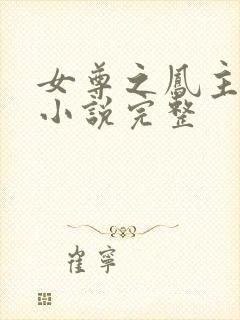 女尊之鳳主
小說完整
崔寧